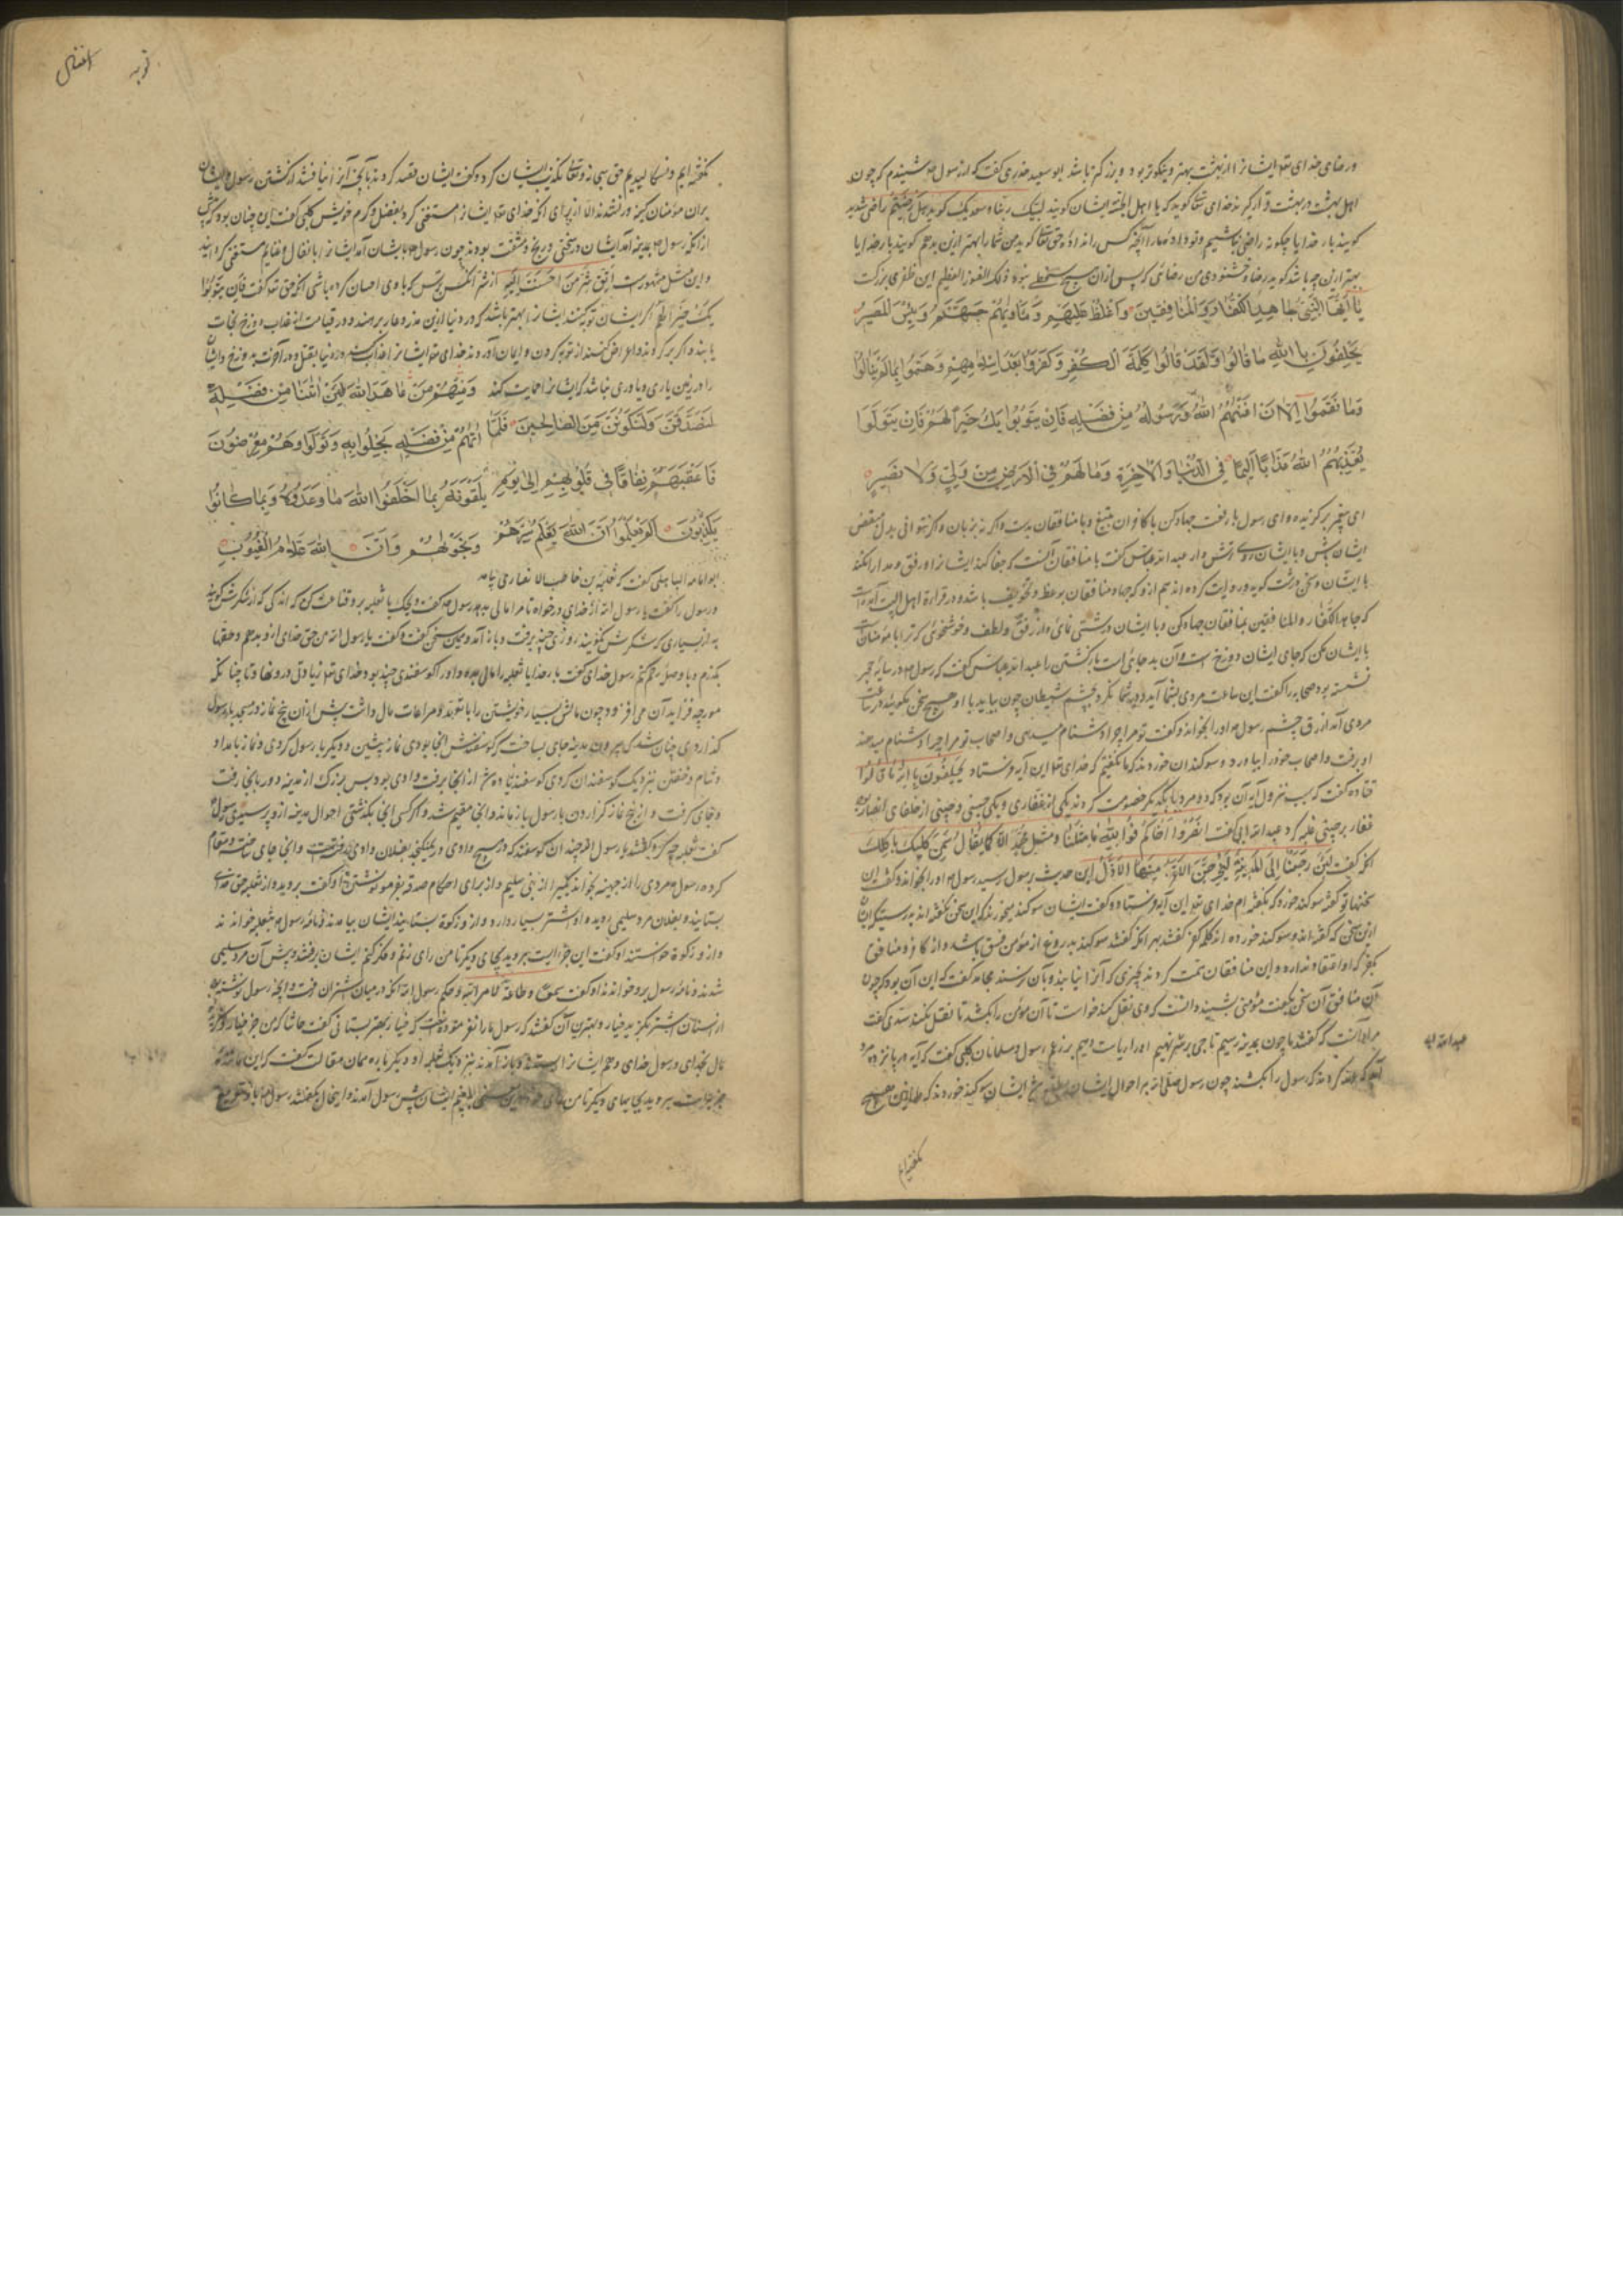 ورضای خدای تعا ایشانرا از بهشت بهتر و نیکوتر بود و بزرکتر باشد ابو سعید خدری کفت که از رسول شنیدم که چون
اهل بهشت در بهشت قرار کیرند خدای تعا کوید که یا اهل الجنة ایشان کویند لبیک ربنا وسعدیک کوید هل رضیتم راضی شدید
کویند بار خدایا چکونه راضی نباشیم و تو دادهٔ ما را آنچه کس را نداده حق تعا کوید من شما را بهتر ازین بدهم کویند بار خدایا
بهتر ازین چه باشد کوید رضا و خشنودی من رضائی که پس ازان هیچ سخط نبود ذلک الفوز العظیم این ظفری بزرکست
یَا أَیُّهَا النَّبِیُّ جَاهِدِ الْکُفَّارَ وَالْمُنَافِقِینَ وَاغْلُظْ عَلَیْهِمْ وَمَأْوَیهُمْ جَهَنَّمُ وَبِئْسَ الْمَصِیرُ
یَحْلِفُونَ بِاللَّهِ مَا قَالُوا وَلَقَدْ قَالُوا کَلِمَةَ الْکُفْرِ وَکَفَرُوا بَعْدَ إِسْلَامِهِمْ وَهَمُّوا بِمَا لَمْ یَنَالُوا
وَمَا نَقَمُوا إِلَّا أَنْ أَغْنَیهُمُ اللَّهُ وَرَسُولُهُ مِنْ فَضْلِهِ فَإِنْ یَتُوبُوا یَکُ خَیْرًا لَهُمْ وَإِنْ یَتَوَلَّوْا
یُعَذِّبْهُمُ اللَّهُ عَذَابًا أَلِیمًا فِی الدُّنْیَا وَالْآخِرَةِ وَمَا لَهُمْ فِی الْأَرْضِ مِنْ وَلِیٍّ وَلَا نَصِیرٍ
ای پیغمبر برکزیده و ای رسول جهاد کن با کافران بتیغ و با منافقان
ایشان باش و با ایشان روی ترش دار عبد الله عباس کفت با منافقان آنست که جفا کند ایشانرا و رفق و مدارا نکند
با ایشان و سخن درشت کوید و روایت کرده اند هم ازو که جهاد منافقان بوعظ و تخویف باشد و در قراءة اهل البیت آمده است
که جاهد الکفار بالمنافقین بمنافقان جهاد کن و با ایشان درشتی نمای و از رفق و لطف و خوشخوئی که ترا با مؤمنان است
با ایشان مکن که جای ایشان دوزخ است و آن بد جائی است بازکشتن را عبد الله عباس کفت که رسول در سایه حجره
نشسته بود صحابه را کفت این ساعت مردی بشما آید و در شما نکرد بچشم شیطان چون بیاید با او هیچ سخن مکوئید در ساعت
مردی آمد ازرق چشم رسول او را بخواند و کفت تو مرا چرا دشنام میدهی و اصحاب تو مرا چرا دشنام میدهند
او برفت و اصحاب خود را بیاورد و سوکندان خوردند که ما نکفتیم که خدای تعا این آیه فرستاد یَحْلِفُونَ بِاللَّهِ مَا قَالُوا
قتاده کفت که سبب نزول آیه آن بود که دو مرد با یکدیکر خصومت کردند یکی از غفاری و یکی جهینی و جهینی از حلفای انصار بود
غفار بر جهینی غلبه کرد عبد الله ابی کفت انصروا اخاکم فوالله ما مثلنا ومثل محمد الا کما یقال سمن کلبک یاکلک
آنکه کفت لَئِنْ رَجَعْنَا إِلَی الْمَدِینَةِ لَیُخْرِجَنَّ الْأَعَزُّ مِنْهَا الْأَذَلَّ این حدیث برسول رسید رسول او را بخواند و کفت این
سخنها تو کفتهٔ سوکند خورد که نکفته ام خدای تعا این آیه فرستاد و کفت ایشان سوکند میخورند که این سخن نکفته اند بدرستیکه ایشان
این سخن که کفته اند و سوکند خورده اند کلمه کفر کفتند
بکفر که او اعتقاد ندارد و این منافقان همت کردند بچیزی که آنرا نیابند و بآن نرسند مجاهد کفت که این آن بود که چون
آن منافق آن سخن بکفت مؤمنی بشنید دانست که وی نقل کند خواست تا آن مؤمن را بکشد تا نقل نکند سدی کفت
مراد آنست که کفتند ما چون بمدینه رسیم تاجی بر سر نهیم او را ریاست دهیم بر زعم رسول و مسلمانان کلبی کفت که آیه در پانزده مرد
آمد که قصد کردند که رسول را بکشند چون رسول صلی الله بر احوال ایشان مطلع شد ایشان سوکند خوردند که ما ازین هیچ
عبد الله ابی
نکفته ایم
توبه
انفال
نکفته ایم و نسکالیدیم حق سبحانه وتعالی تکذیب ایشان کرد و کفت ایشان قصد کردند بآنچه آنرا نیافتند از کشتن رسول و ایشان
بران مؤمنان کینه ور نشدند الا از برای آنکه خدای تعا ایشانرا مستغنی کرد بفضل و کرم خویش کلبی کفت این چنان بود که پیش
از آنکه رسول بمدینه آمد ایشان در سختی و رنج و مشقت بودند چون رسول بایشان آمد ایشانرا بانفال و غنایم مستغنی کردانید
و این مثل مشهور است اتق شر من احسنت الیه از شر آنکس بترس که با وی احسان کرده باشی آنکه حق تعا کفت فَإِنْ یَتُوبُوا
یَکُ خَیْرًا لَهُمْ اکر ایشان توبه کنند ایشانرا بهتر باشد که در دنیا ازین عذر و عار برهند و در قیامت از عذاب دوزخ نجات
یابند و اکر برکردند و اعراض کنند از توبه کردن و ایمان آوردن خدای تعا ایشانرا عذاب کند در دنیا بقتل و در آخرت بدوزخ و ایشان
را در زمین یاری و یاوری نباشد که ایشانرا حمایت کند وَمِنْهُمْ مَنْ عَاهَدَ اللَّهَ لَئِنْ آتَانَا مِنْ فَضْلِهِ
لَنَصَّدَّقَنَّ وَلَنَکُونَنَّ مِنَ الصَّالِحِینَ فَلَمَّا آتَیهُمْ مِنْ فَضْلِهِ بَخِلُوا بِهِ وَتَوَلَّوْا وَهُمْ مُعْرِضُونَ
فَأَعْقَبَهُمْ نِفَاقًا فِی قُلُوبِهِمْ إِلَی یَوْمِ یَلْقَوْنَهُ بِمَا أَخْلَفُوا اللَّهَ مَا وَعَدُوهُ وَبِمَا کَانُوا
یَکْذِبُونَ أَلَمْ یَعْلَمُوا أَنَّ اللَّهَ یَعْلَمُ سِرَّهُمْ وَنَجْوَیهُمْ وَأَنَّ اللَّهَ عَلَّامُ الْغُیُوبِ
ابو امامه الباهلی کفت که ثعلبة بن حاطب الانصاری بیامد
و رسول را کفت یا رسول الله از خدای درخواه تا مرا مالی بدهد رسول کفت ویحک یا ثعلبه برو قناعت کن که اندکی که از شکرش کویند
به از بسیاری که شکرش نکویند روزی چند برفت و باز آمد و همین سخن کفت و کفت یا رسول الله من حق خدای ازو بدهم و حقها
بکزارم و با وصله رحم کنم رسول خدای کفت بار خدایا ثعلبه را مال بده و او را کوسفندی چند بود خدای تعا زیادتی در و نهاد تا چنانکه
مورچه فزاید آن می افزود چون مالش بسیار شد خویشتن را بتعهد و مراعات مال داشت پیش ازان پنج نماز در مسجد با رسول
کذاردی چنان شد که بیرون مدینه جای بساخت که کوسفندش آنجا بودی نماز پیشین و دیکر با رسول کردی و نماز بامداد
و شام و خفتن بنزدیک کوسفندان کردی کوسفند زیاده شد از آنجا برفت وادی بود بس بزرک از مدینه دور بآنجا رفت
و جای کرفت و از پنج نماز کزاردن با رسول باز ماند و آنجا مقیم شد و اکر کسی آنجا بکذشتی احوال مدینه ازو پرسیدی رسول
کفت ثعلبه چه کرد کفتند یا رسول الله چندان کوسفند که در هیچ وادی در نمیکنجد بفلان وادی رفته است و آنجا جای ساخته و مقام
کرده رسول مردی را از جهینه بخواند و یکی را از بنی سلیم و از برای احکام صدقه بفرمود نوشتن و کفت بروید و از ثعلبه حق خدای
بستانید و بفلان مرد سلیمی روید و او شتر بسیار دارد و ازو زکوة بستانید ایشان بیامدند و نامه رسول بر ثعلبه خواندند
و ازو زکوة خواستند او کفت این جزیه است بروید بجای دیکر تا من رای زنم و فکر کنم ایشان برفتند و پیش آن مرد سلیمی
شدند و نامه رسول برو خواندند او کفت سمعا وطاعة لامر الله و حکم رسول الله آنکه در میان شتران رفت و آنچه رسول نوشته بود
از اسنان شتر بکزید خیار و بهترین آن کفتند که رسول ما را نفرموده است که خیار و بهتر بستانی کفت حاشا که من جز خیار و کزیده
مال بخدای و رسول خدای دهم ایشانرا بستدند و باز آمدند بنزدیک ثعلبه او دیکر باره همان مقالت کفت که این
جزیه است بروید بجای دیکر تا من ایشان پیش رسول آمدند و این حال بکفتند رسول